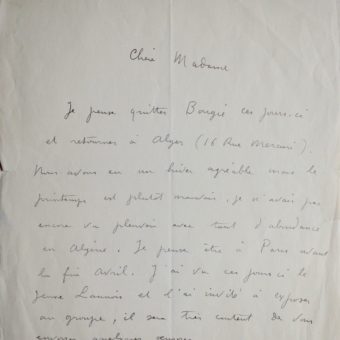 Chère Madame
Je pense quitter Bougie ces jours-ci
et retourner à Alger (16 Rue Mercuri).
Nous avons eu un hiver agréable mais le
printemps est plutôt mauvais, je n'avais pas
encore vu pleuvoir avec tant d'abondance
en Algérie. Je pense être à Paris avant
la fin Avril. J'ai vu ces jours-ci le
jeune Launois et l'ai invité à exposer
au groupe, il sera très content de vous
envoyer quelques